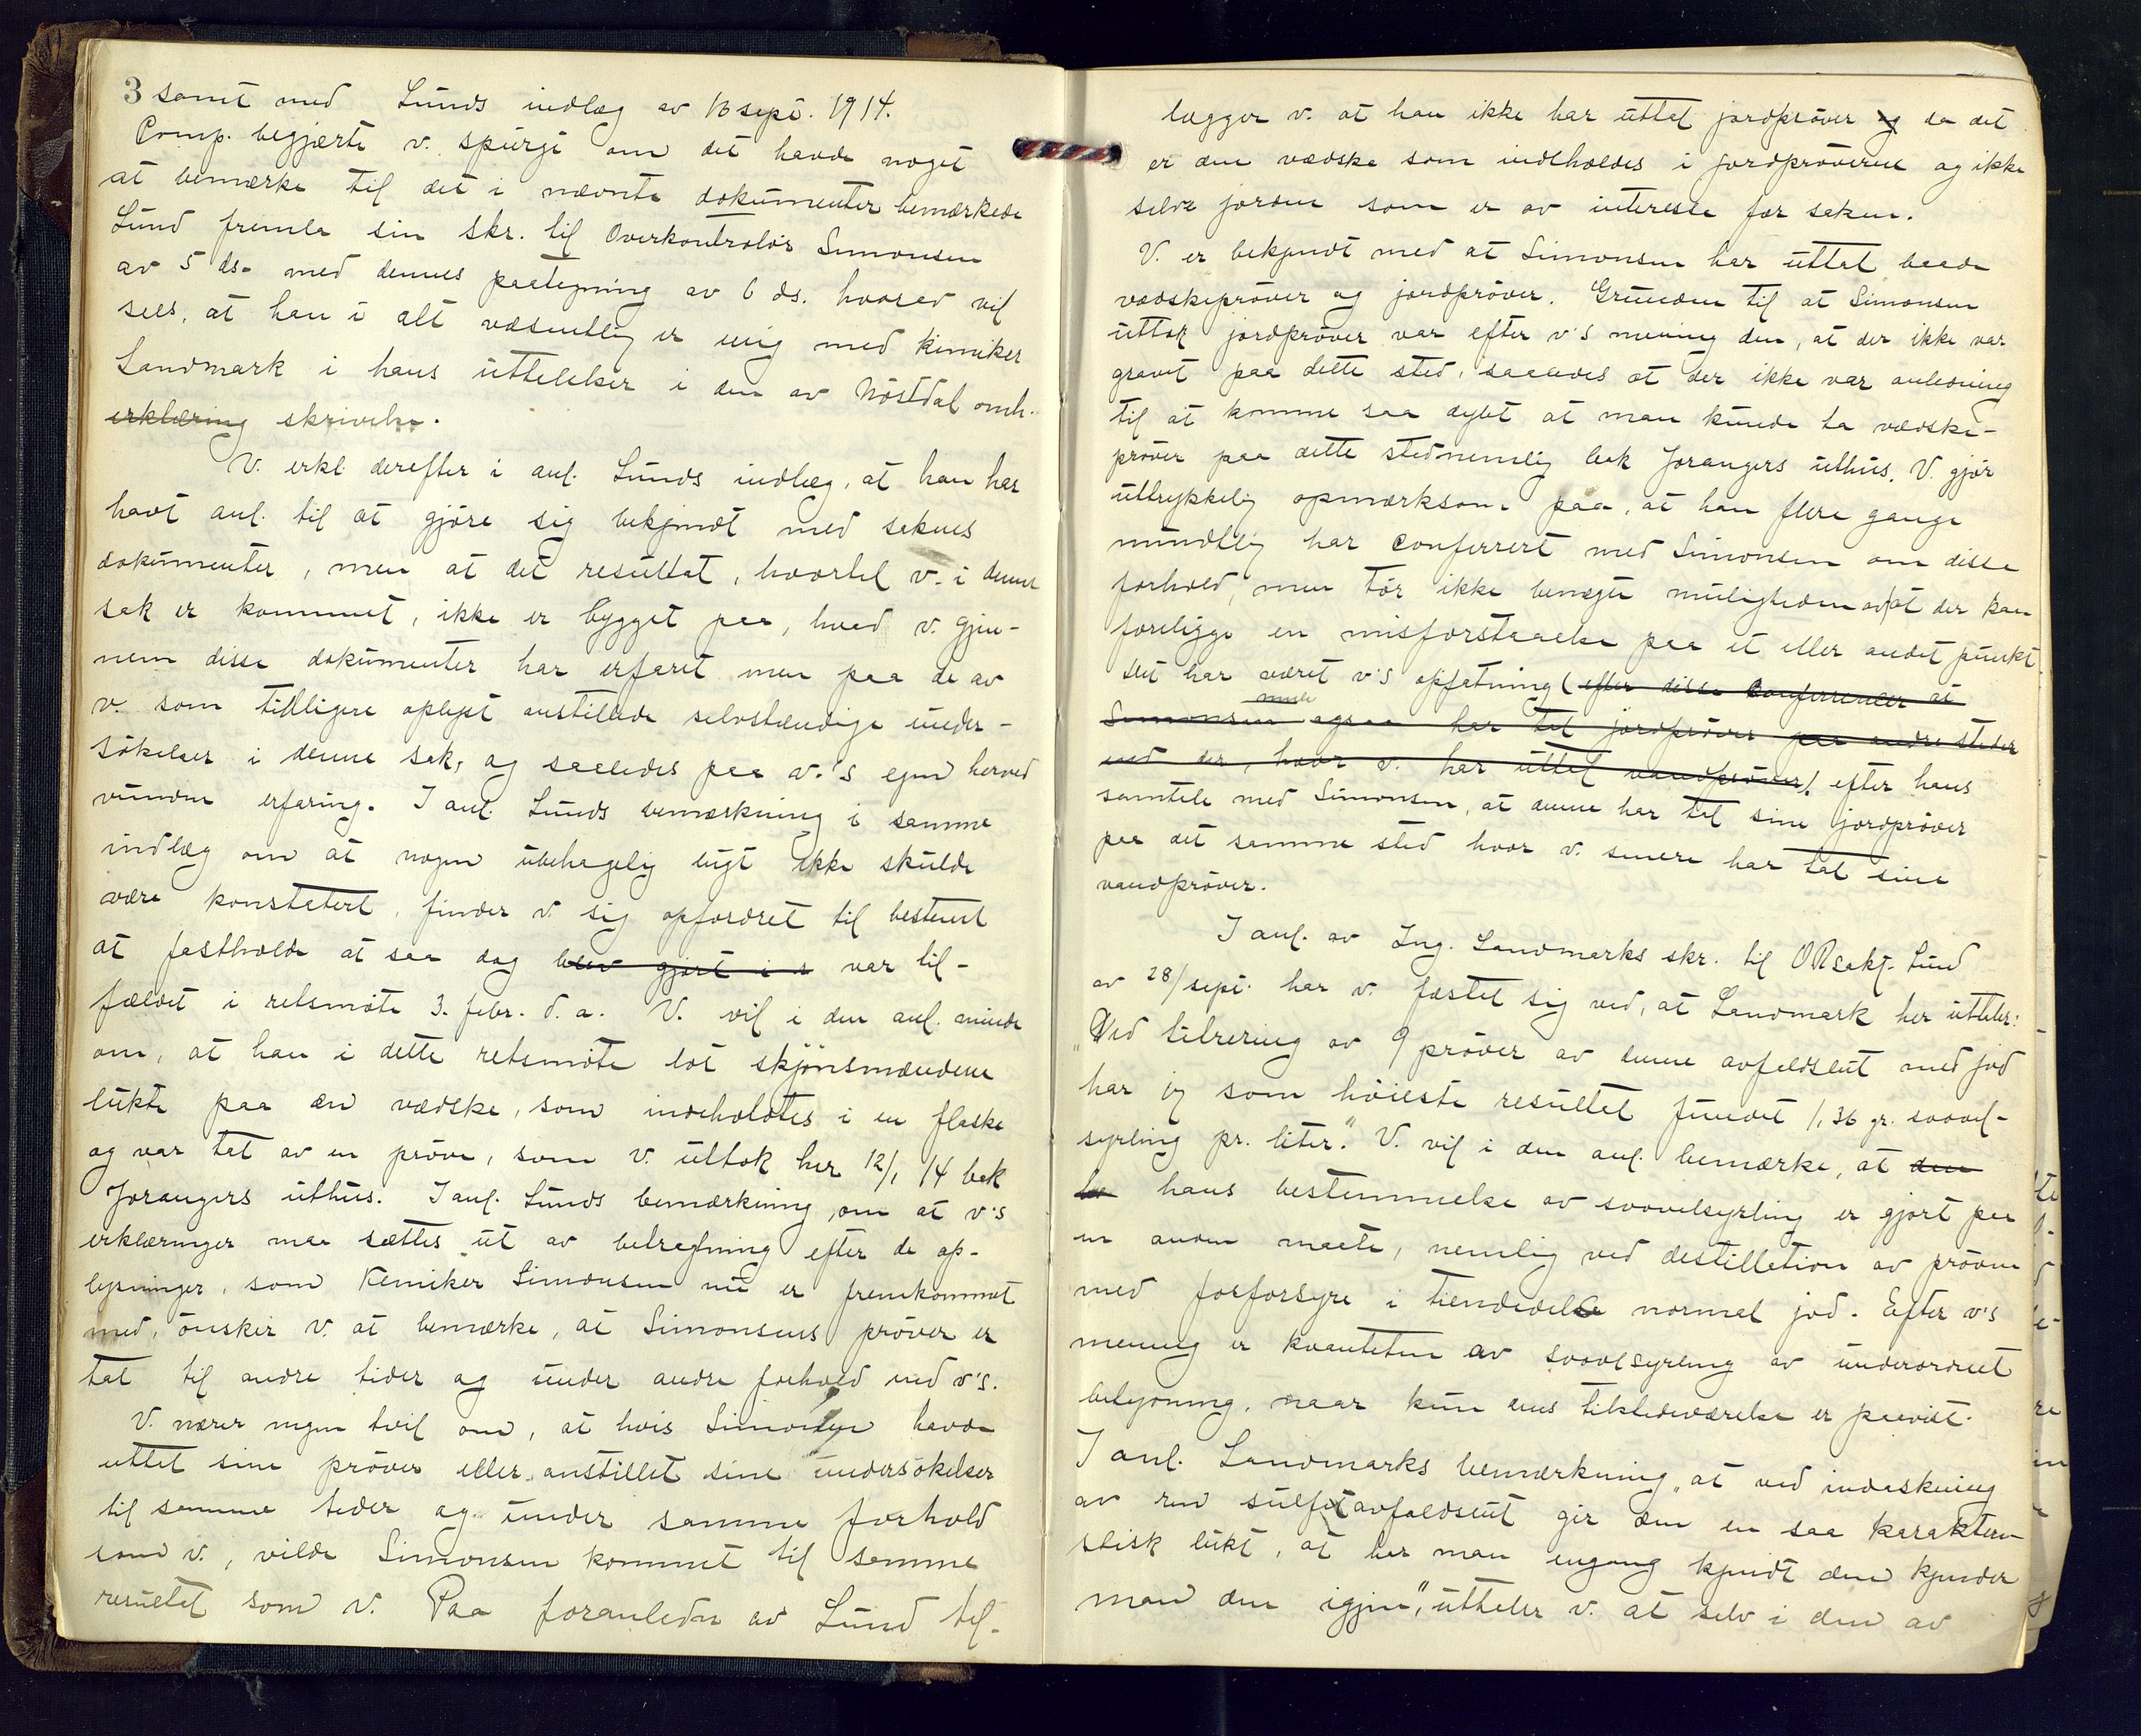 3 samt med Lunds indlæg av 16 sept. 1914.
Comp. begjærte v. spurgt om det havde noget
at bemærke til det i nævnte dokumenter bemærkede
Lund fremla sin skr. til Overkontrolør Simonsen
av 5 ds. med dennes paategning av 6 ds. hvorav vil
sees, at han i alt væsentlig er enig med kemiker
Landmark i hans uttalelser i den av Nøstdal omh.
erklæring skrivelse.
V. erkl. derefter i anl. Lunds indlæg, at han har
havt anl. til at gjøre sig bekjendt med sakens
dokumenter, men at det resultat, hvortil v. i denne
sak er kommet, ikke er bygget paa, hvad v. gjen-
nem disse dokumenter har erfaret men paa de av
v. som tidligere oplyst anstillede selvstændige under-
søkelser i denne sak, og saaledes paa v.'s egen herved
vundne erfaring. I anl. Lunds bemærkning i samme
indlæg om at nogen ubehagelig lugt ikke skulde
være konstatert, finder v. sig opfordret til bestemt
at fastholde at saa dog blev gjort i r var til-
fældet i retsmøte 3. febr. d. a. V. vil i den anl. minde
om, at han i dette retsmøte lot skjønsmændene
lukte paa en vædske, som indeholdtes i en flaske
og var tat av en prøve, som v. uttok her 12/1 14 bak
Jorangers uthus. I anl. Lunds bemærkning, om at v's
erklæringer maa sættes ut av betragtning efter de op-
lysninger, som Kemiker Simonsen nu er fremkommet
med, ønsker v. at bemærke, at Simonsens prøver er
tat til andre tider og under andre forhold end v's.
V. nærer ingen tvil om, at hvis Simonsen havde
uttat sine prøver eller anstillet sine undersøkelser
til samme tider og under samme forhold
som v., vilde Simonsen kommet til samme
resultat som v. Paa foranledn av Lund til-
lægger v. at han ikke har uttat jordprøver og da det
er den vædske som indeholdes i jordprøverne og ikke
selve jorden som er av interesse for saken.
V. er bekjendt med at Simonsen har uttat baade
vædskeprøver og jordprøver. Grunden til at Simonsen
uttok jordprøver var efter v's mening den, at der ikke var
gravet paa dette sted, saaledes at der ikke var anledning
til at komme saa dybt at man kunde ta vædske-
prøver paa dette sted nemlig bak Jorangers uthus. V. gjør
uttrykkelig opmærksom paa, at han flere gange
mundtlig har conferrert med Simonsen om disse
forhold, men tør ikke benegte muligheden av at der kan
foreligge en misforstaaelse paa et eller andet punkt
Det har været v's opfatning (efter disse conferencer at
Simonsen ogsaa har tat jordprøver paa andre steder
end der, hvor v. har uttat vandprøver). efter hans
samtale med Simonsen, at denne har tat sine jordprøver
paa det samme sted hvor v. senere har tat sine
vandprøver.
I anl. av Ing. Landmarks skr. til ORsakf. Lund
av 28/sept. har v. fæstet sig ved, at Landmark her uttaler:
"Ved titrering av 9 prøver av denne avfaldslut med jod
har jeg som høieste resultat fundet 1,36 gr. svovel-
syrling pr. liter." V. vil i den anl. bemærke, at den
hans bestemmelse av svovelsyrling er gjort paa
en anden maate, nemlig ved destillation av prøven
med forforsyre i tiendedels normal jod. Efter v's
mening er kvantiteten av svovlsyrling av underordnet
betydning, naar kun dens tilstedeværelse er paavist.
I anl. Landmarks bemærkning "at ved indaskning
av ren sulfitavfaldslut gir den en saa karakteri-
stisk lukt, at har man engang kjendt den kjender
man den igjen", uttaler v. at selv i den av